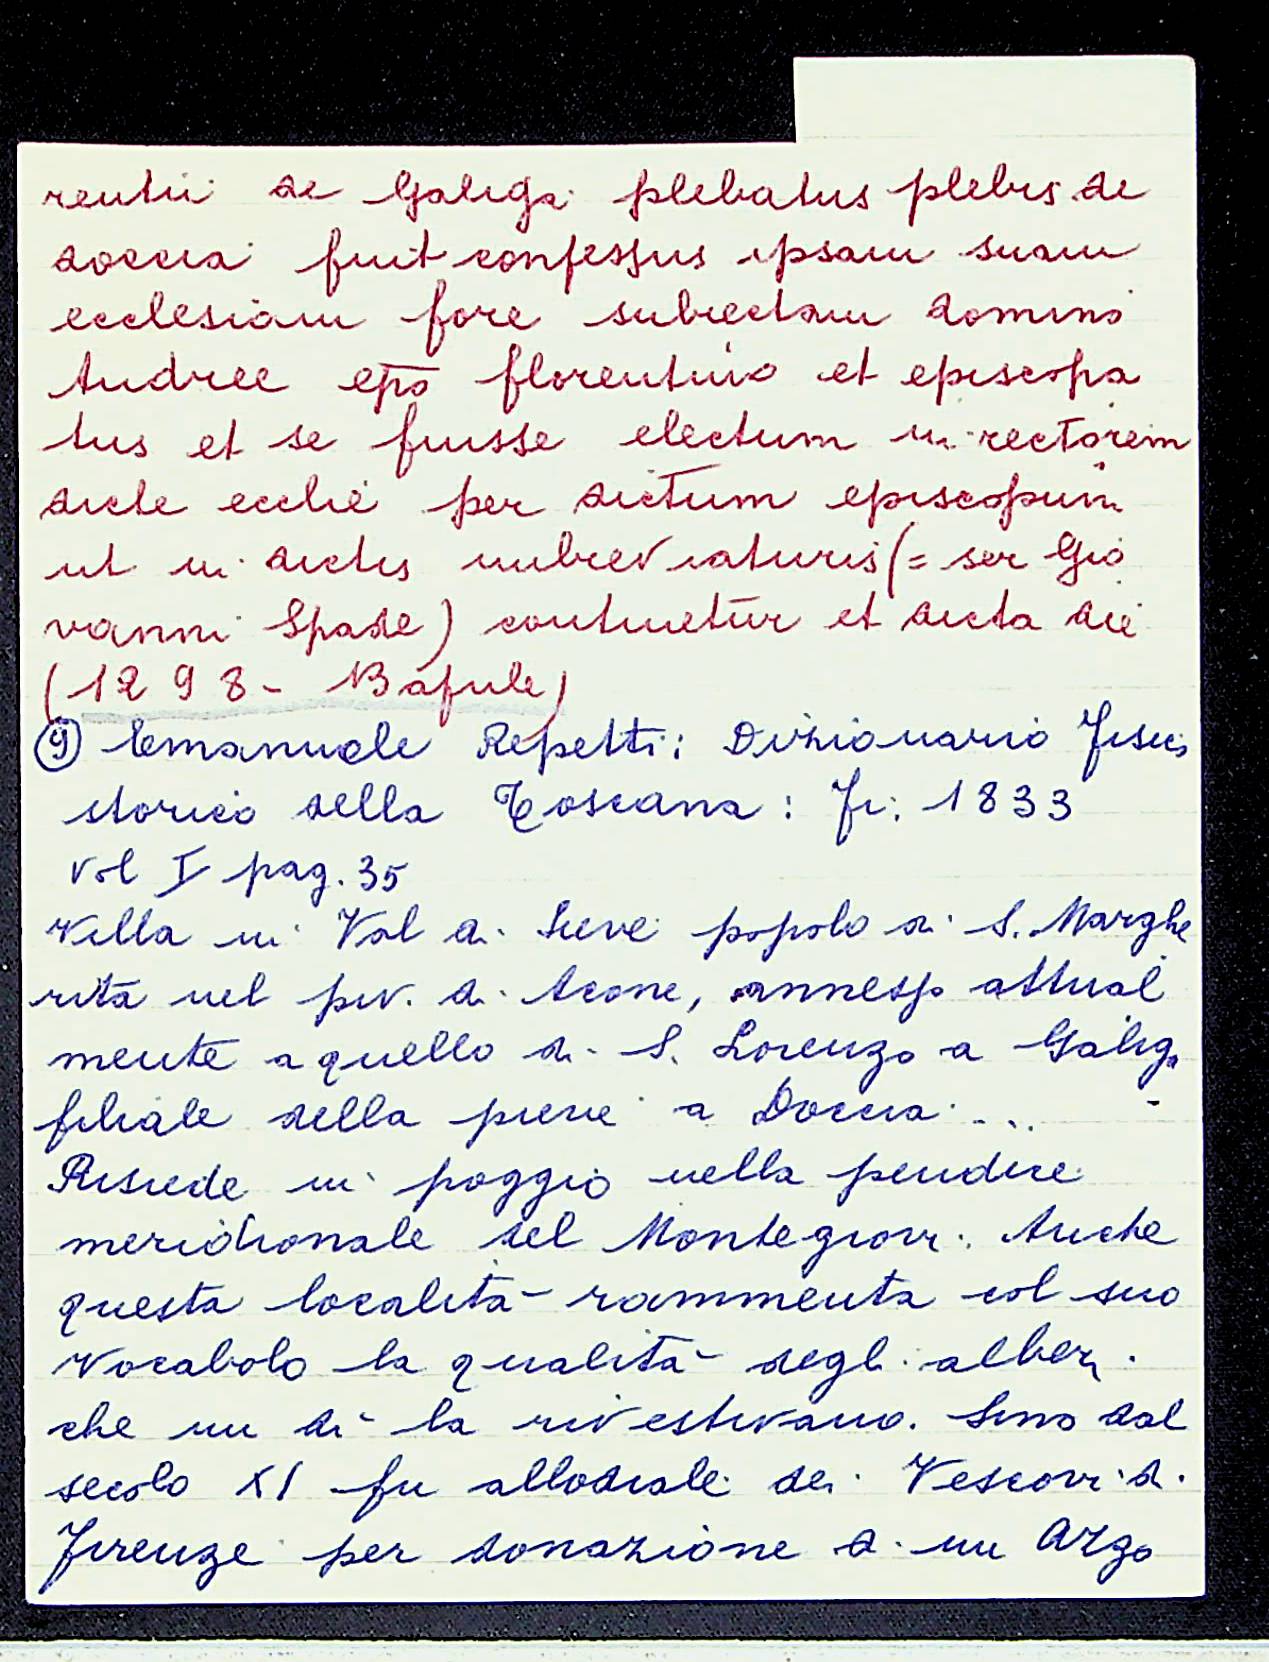 rentii de Galiga plebatus plebis de
doccia fuit confessus ipsam suam
ecclesiam fore subiectam domino
Andree epo florentino et episcopa
tus et se fuisse electum in rectorem
dicte ecclie per dictum episcopum
ut in dictis imbreviaturis (= ser Gio
vanni Spade) continetur et dicta die
(1298 -
⑨ Emanuele Repetti: Dizionario Fisico
storico della Toscana: Fi: 1833
vol I pag. 35
Villa in Val di Sieve popolo di S. Marghe
rita nel piv. di Acone, annesso attual
mente a quello di S. Lorenzo a Galiga
filiale della pieve a Doccia ...
Risiede in poggio nella pendice
meridionale del Montegiovi. Anche
questa località rammenta col suo
vocabolo la qualità degli alberi
che un dì la rivestivano. Sino dal
secolo XI fu allodiale dei Vescovi di
Firenze per donazione di un Azzo